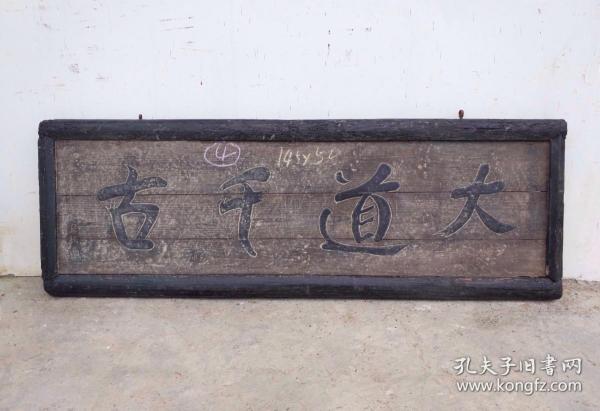 大道千古
4
145x50
孔夫子旧書网
www.kongfz.com